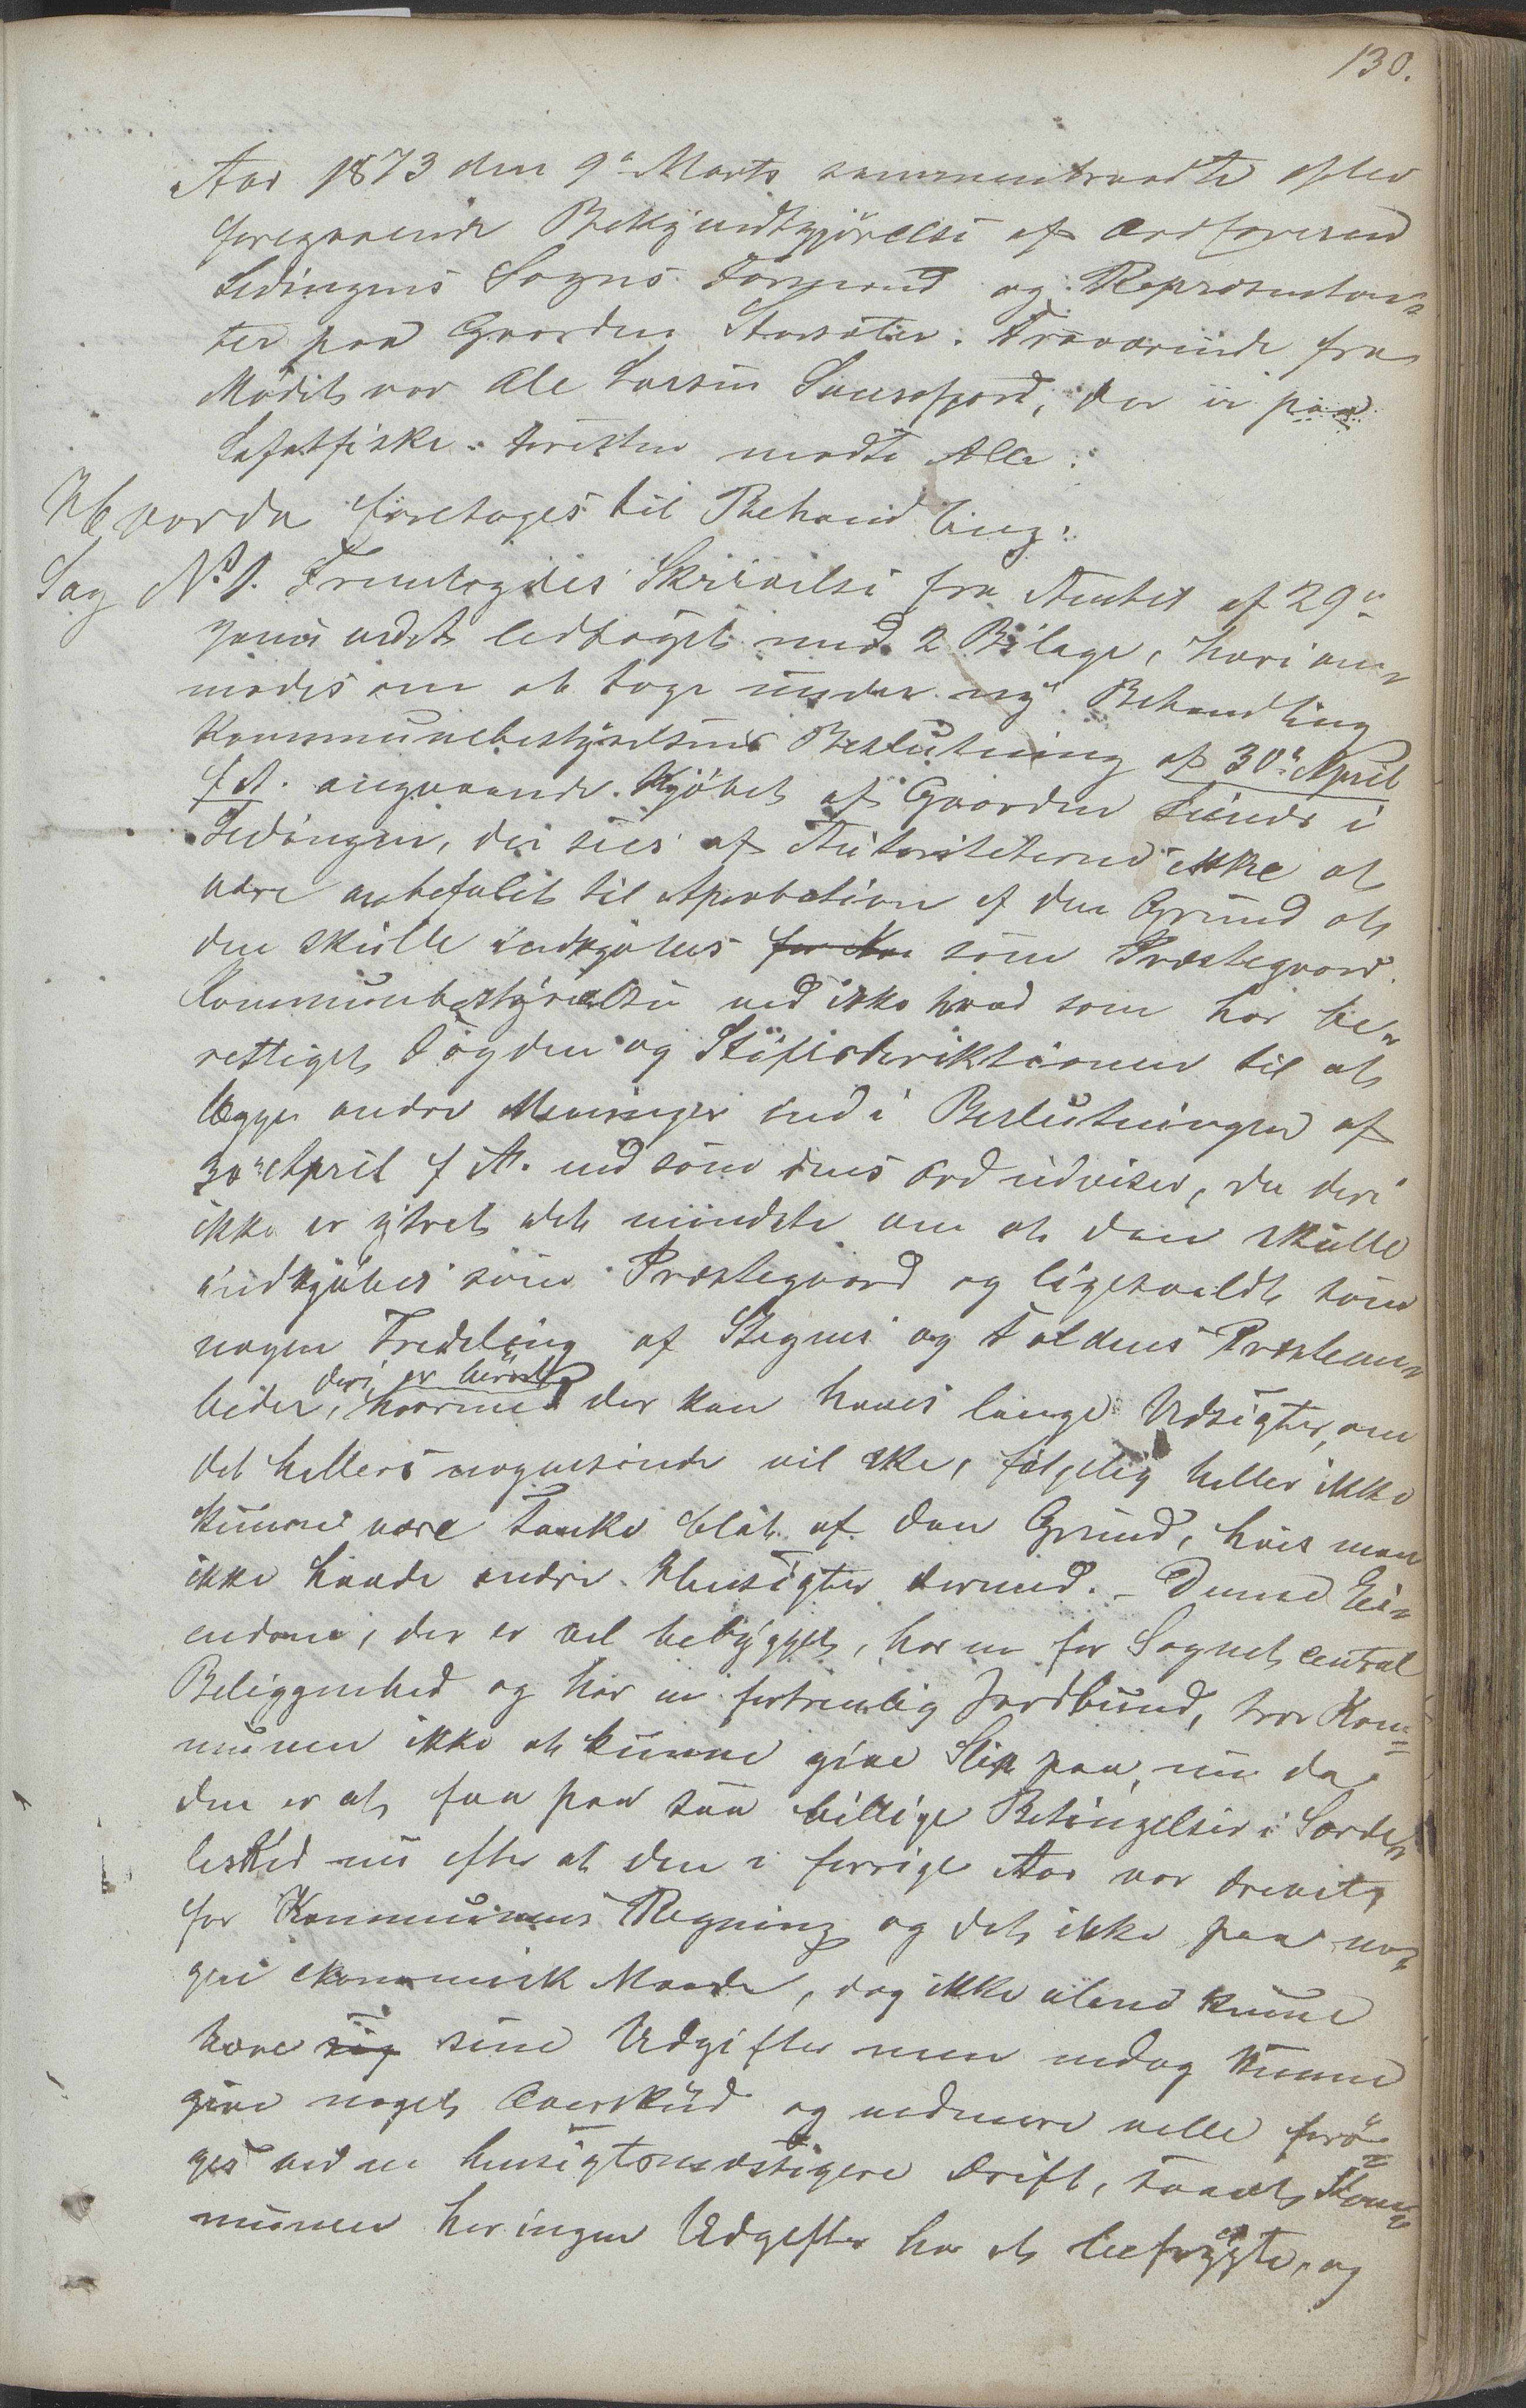 130.
Aar 1873 den 9de Marts sammentraadte efter
foregaaende Bekjendtgjørelse af Ordføreren
Lødingens Sogns Formænd og Repræsentan-
ter paa Gaarden . Fraværende fra
Mødet var Ole Larsen , der er paa
Lofotfiske. Forresten mødte Alle.
Hvorda foretoges til Behandling:
Sag No 1. Fremlagdes Skrivelse fra Amtet af 29de
Januar ledsaget med 2 Bilage, hvori an-
modes om at tage under ny Behandling
Kommunebestyrelsens Beslutning af 30te April
f A. angaaende Kjøbet af Gaarden i
Lødingen, der sees af Autoriteterne ikke at
være anbefalet til Aprobation af den Grund at
den skulle indkjøbes for Kom som Præstegaard.
Kommunebestyrelsen ved ikke hvad som har be-
rettiget Fogden og Stiftsderiktionen til at
lægge andre Meninger ind i Beslutningen af
30te April f A. end som dens Ord udviser, da deri
ikke er ytret det mindste om at den skulle
indkjøbes som Præstegaard og ligesaalidt som
nogen Fradeling af Stegens og Foldens Præstem-
beder, deri er berørt hvormed der kan haves lange Udsigter, om
det hellers nogensinde vil ske, følgelig heller ikke
kunne være Tanke blot af den Grund, hvis man
ikke havde andre Hensigter dermed. - Denne Ei-
endom, der er vel bebygget, har en for Sognet central
Beliggenhed og har en fortrinlig Jordbund, tror Kom-
munen ikke at kunne give Slip paa, nu da
den er at faa paa saa billige Betingelser i Særde-
leshed nu efter at den i forrige Aar var drevet
for Kommunens Regning og det ikke paa no-
gen ekonomisk Maade, dog ikke alene kunne
bære sig sine Udgifter men endog kunne
give noget Overskud og vedmere ville forø-
ges ved en hensigtsmæssigere Drift, saaat Kom-
munen her ingen Udgifter har at befrygte, og